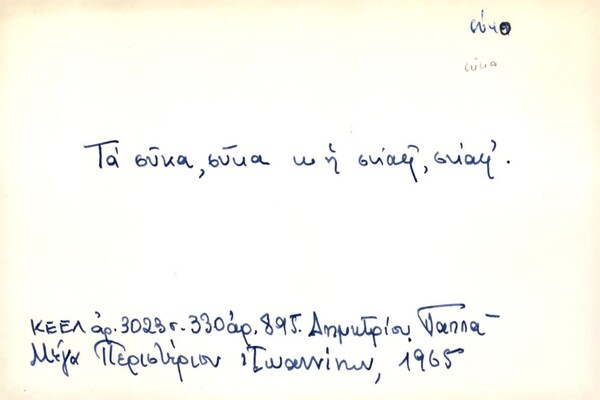 σύκο
σύκα
Τά σῦκα, σῦκα κ ἡ σκάφ', σκάφ'.
ΚΕΕΛ ἀρ. 3023 σ. 330 ἀρ. 895. Δημητρίου Παππᾶ
Μέγα Περιστέριον Ἰωαννίνων, 1965